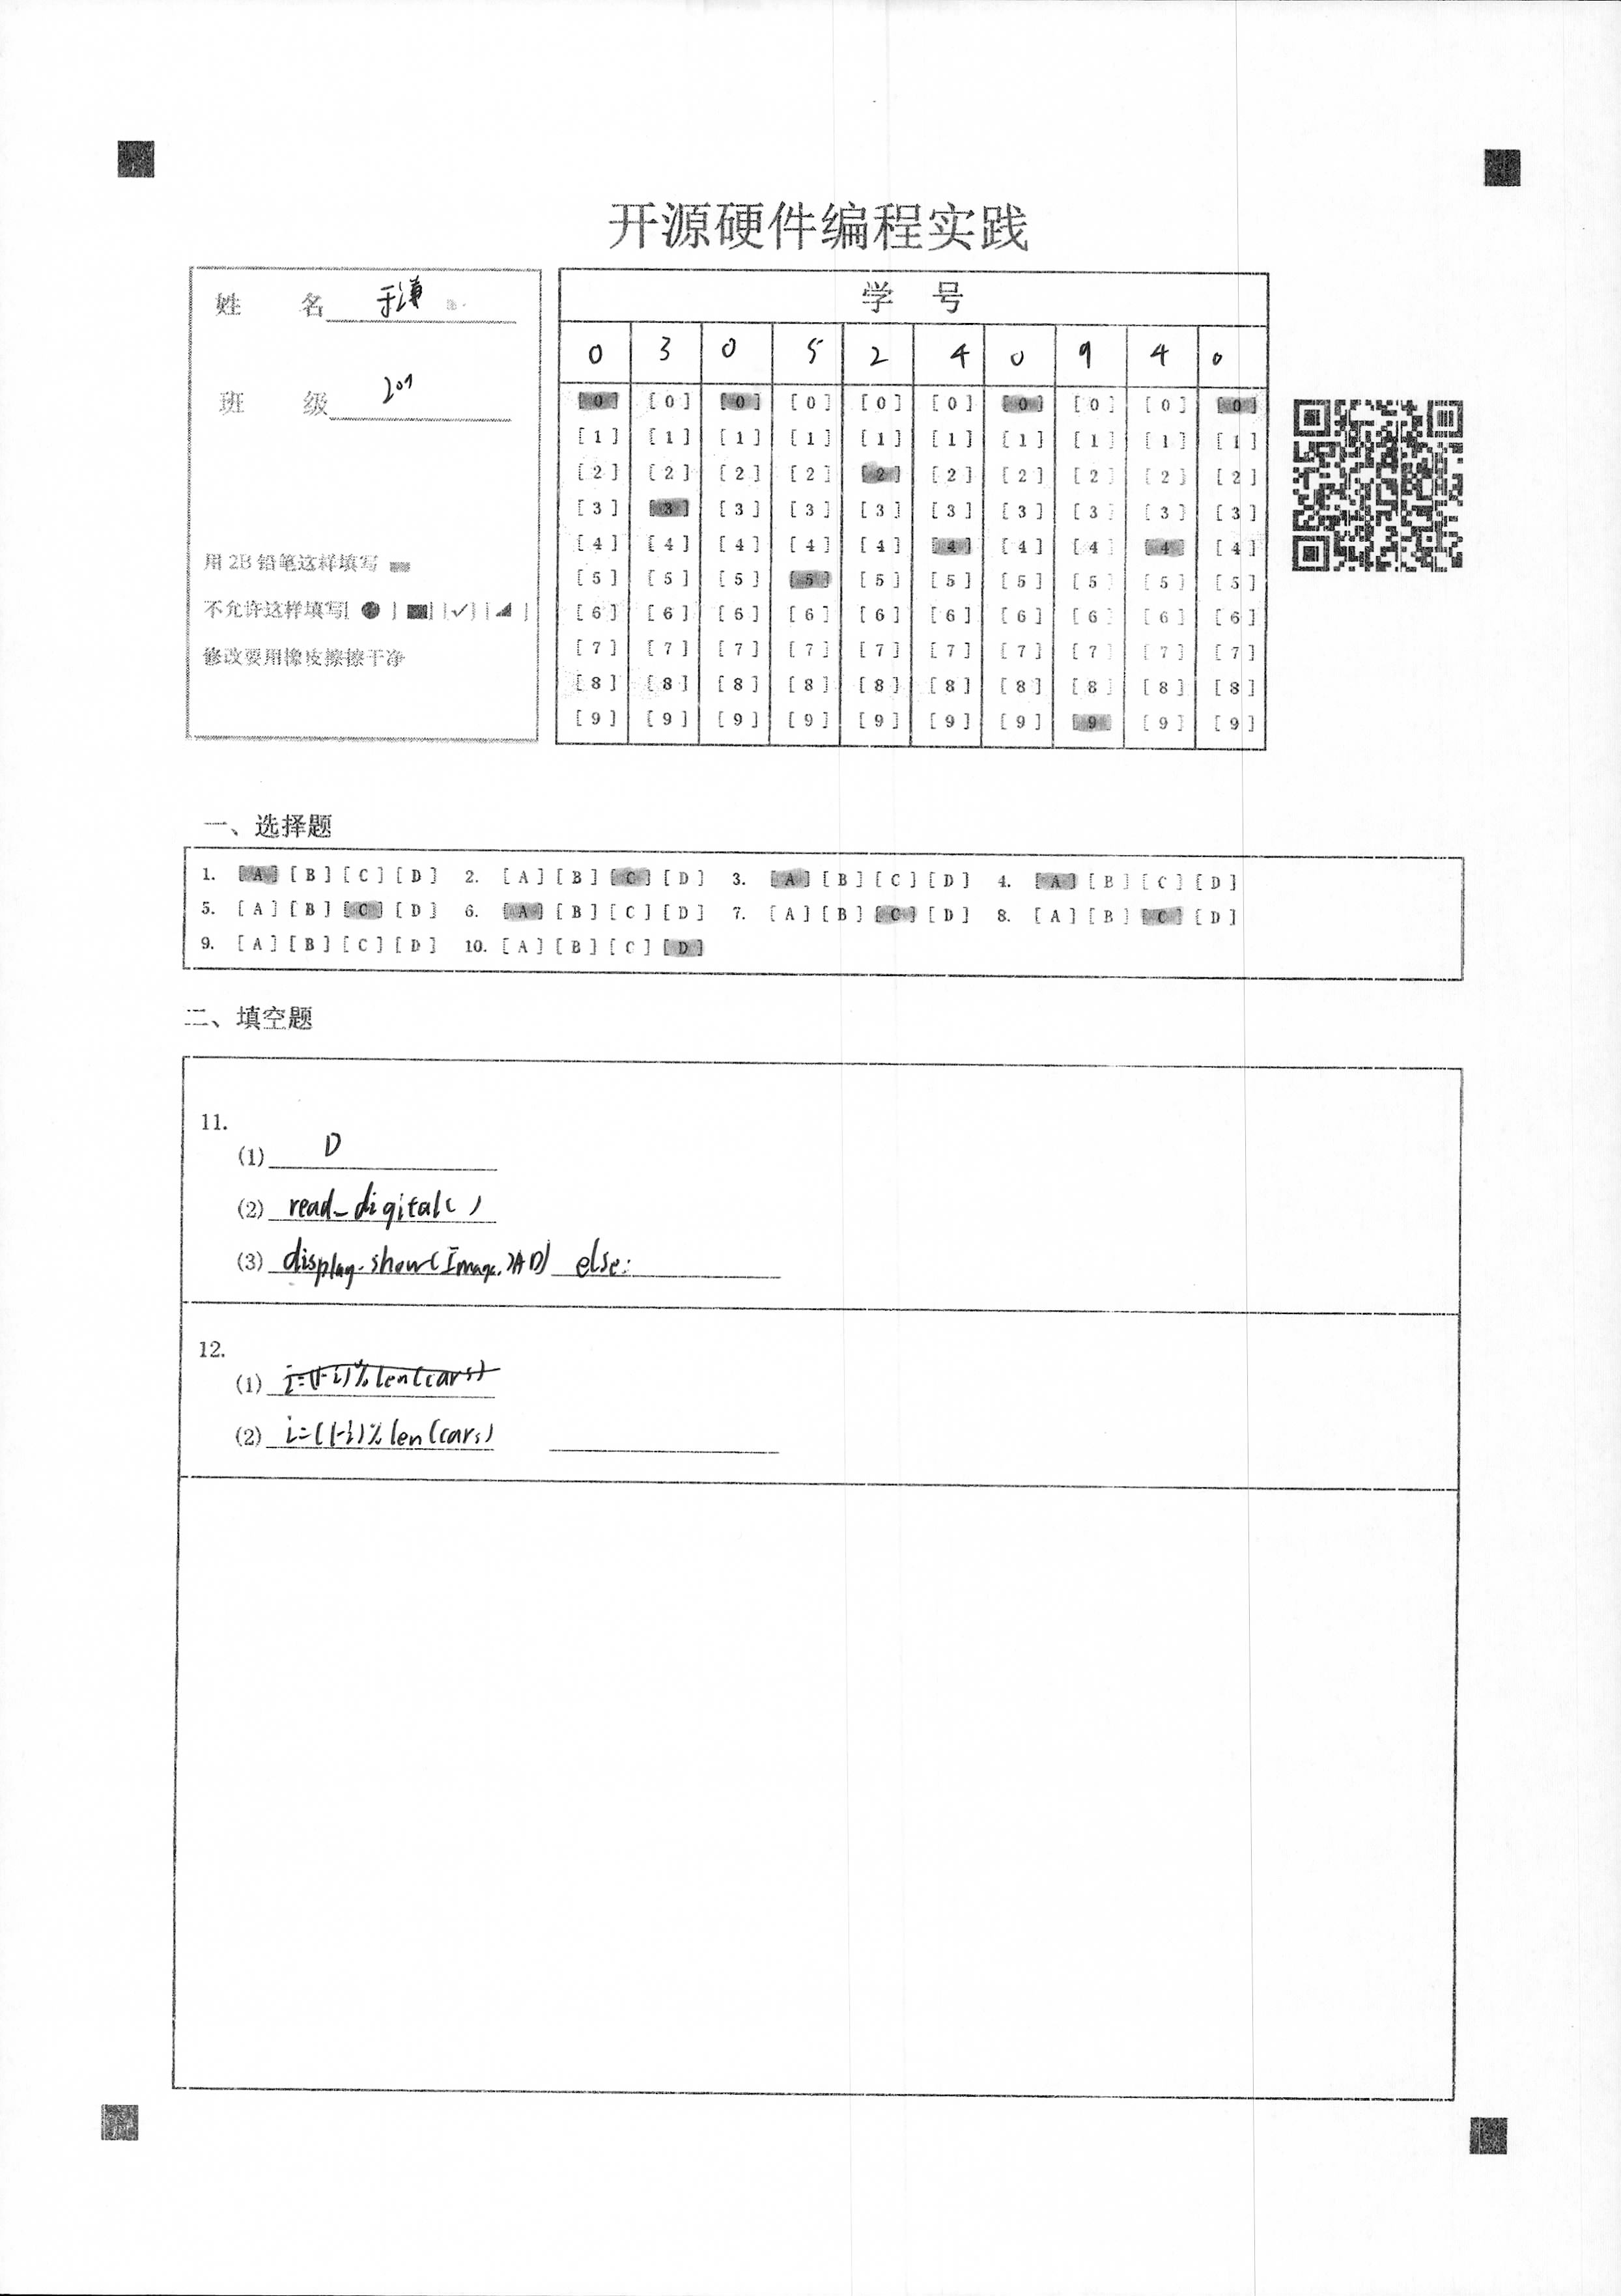 开源硬件编程实践
姓 名 于谦
班 级 201
用 2B 铅笔这样填写
不允许这样填写[ ● ] [■] [✓] [◢ ]
修改要用橡皮擦擦干净
学 号
0 3 0 5 2 4 0 9 4 0
[0] [0] [0] [0] [0] [0] [0] [0] [0] [0]
[1] [1] [1] [1] [1] [1] [1] [1] [1] [1]
[2] [2] [2] [2] [2] [2] [2] [2] [2] [2]
[3] [3] [3] [3] [3] [3] [3] [3] [3] [3]
[4] [4] [4] [4] [4] [4] [4] [4] [4] [4]
[5] [5] [5] [5] [5] [5] [5] [5] [5] [5]
[6] [6] [6] [6] [6] [6] [6] [6] [6] [6]
[7] [7] [7] [7] [7] [7] [7] [7] [7] [7]
[8] [8] [8] [8] [8] [8] [8] [8] [8] [8]
[9] [9] [9] [9] [9] [9] [9] [9] [9] [9]
一、选择题
1. [A] [B] [C] [D] 2. [A] [B] [C] [D] 3. [A] [B] [C] [D] 4. [A] [B] [C] [D]
5. [A] [B] [C] [D] 6. [A] [B] [C] [D] 7. [A] [B] [C] [D] 8. [A] [B] [C] [D]
9. [A] [B] [C] [D] 10. [A] [B] [C] [D]
二、填空题
11.
(1) D
(2) read_digital( )
(3) display.show(Image.SAD) else:
12.
(1) i=(1-i)%len(cars)
(2) i=(1-i)%len(cars)